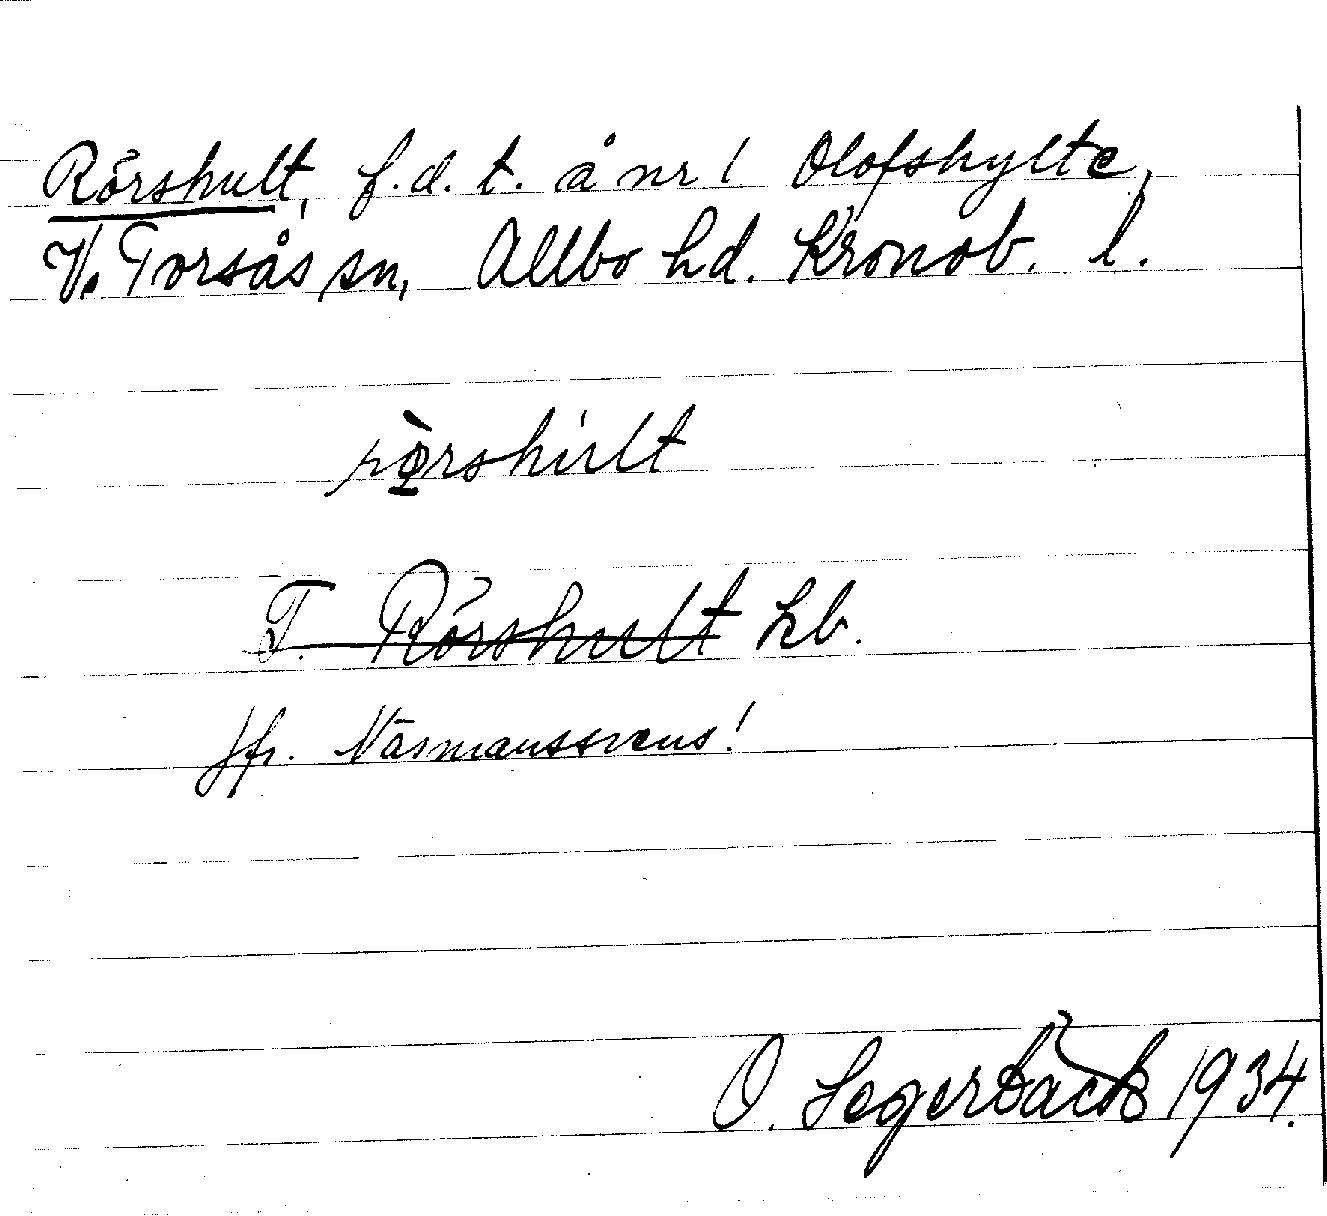 Rörshult, f.d. t. å nr 1 Olofshylte,
V. Torsås sn, Allbo hd. Kronob. l.
T. Rörshult hb.
Jfr. Näsmanssvens!
O. Segerbäck 1934.